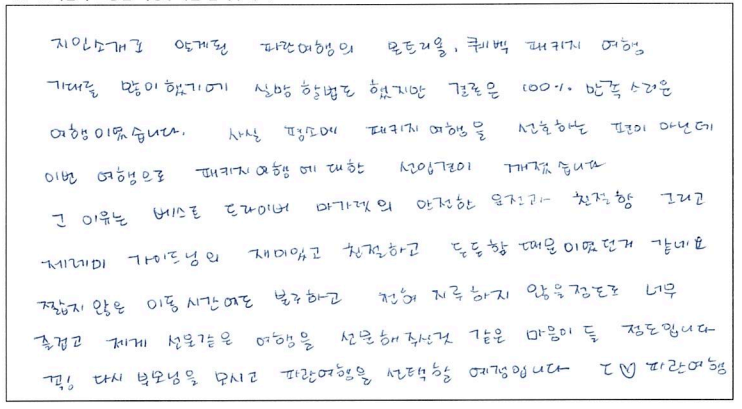 지인소개로 알게된 파란여행의 몬트리올, 퀘백 패키지 여행
기대를 많이했기에 실망할법도 했지만 결론은 100% 만족스러운
여행이였습니다. 사실 평소에 패키지여행을 선호하는 편이 아닌데
이번 여행으로 패키지여행에 대한 선입견이 깨졌습니다
그 이유는 베스트 드라이버 마가렛의 안전한 운전과 친절함 그리고
제레미 가이드님의 재미있고 친절하고 든든함 때문이였던거 같네요
짧지 않은 이동시간에도 불구하고 전혀 지루하지 않을정도로 너무
즐겁고 제게 선물같은 여행을 선물해주신것 같은 마음이 들 정도입니다
꼭! 다시 부모님을 모시고 파란여행을 선택할 예정입니다 I ♡ 파란여행